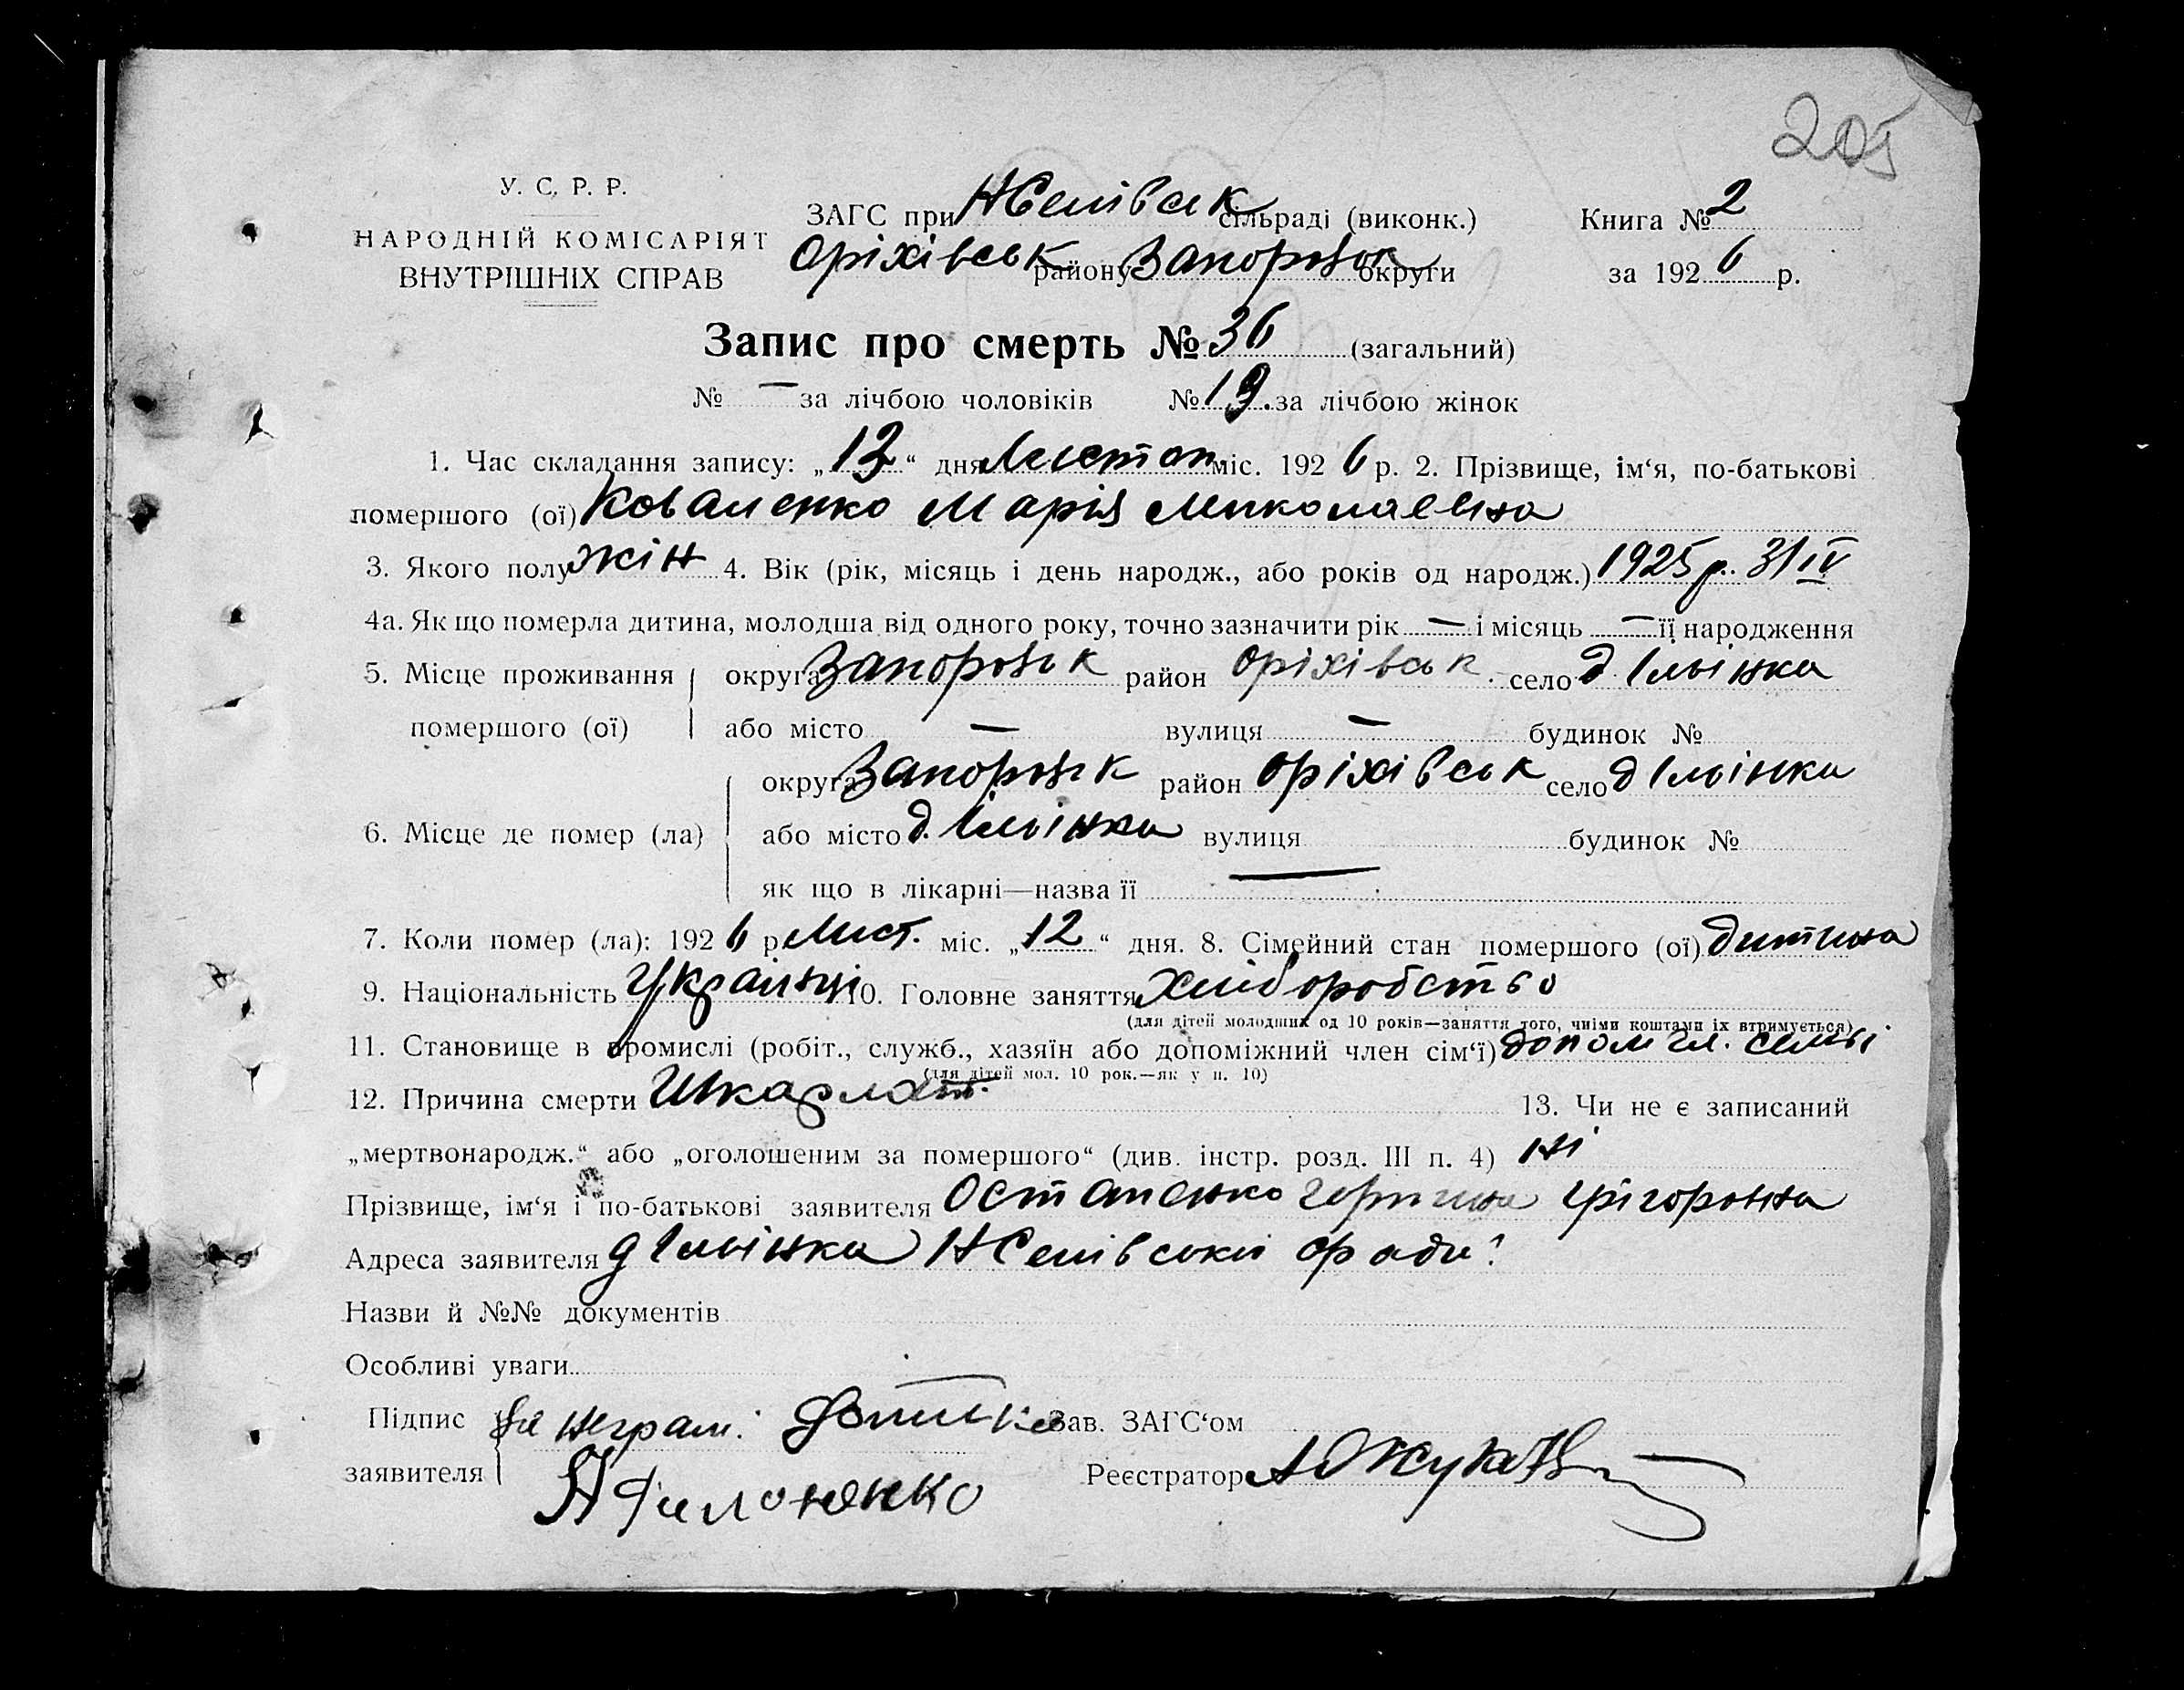 205
У. С. Р. Р.
НАРОДНІЙ КОМІСАРІЯТ
ВНУТРІШНІХ СПРАВ
ЗАГС при НСелівськ сільраді (виконк.)
Оріхівськ району Запорозьк округи
Книга № 2
за 1926 р.
Запис про смерть № 36 (загальний)
№ — за лічбою чоловіків № 19 за лічбою жінок
1. Час складання запису: „13“ дня Листоп міс. 1926 р. 2. Прізвище, ім‘я, по-батькові
помершого (ої) Коваленко Марія Миколаевна
3. Якого полу жін 4. Вік (рік, місяць і день народж., або років од народж.) 1925 р. 31/IV
4а. Як що померла дитина, молодша від одного року, точно зазначити рік — і місяць — її народження
5. Місце проживання округа Запорозьк район Оріхівськ село д Ільінка
помершого (ої) або місто — вулиця — будинок №
округа Запорозьк район Оріхівськ село д Ільінка
6. Місце де помер (ла) або місто д. Ільінка вулиця будинок №
як що в лікарні—назва її —
7. Коли помер (ла): 1926 р Лист. міс. „12“ дня. 8. Сімейний стан помершого (ої) дитина
9. Національність Українці 10. Головне заняття хліборобство
(для дітей молодших од 10 років—заняття того, чиїми коштами їх втримується)
11. Становище в промислі (робіт., служб., хазяїн або допоміжний член сім‘ї) допом чл. семьі
(для дітей мол. 10 рок.—як у п. 10)
12. Причина смерти Шкарлат. 13. Чи не є записаний
„мертвонародж.“ або „оголошеним за помершого“ (див. інстр. розд. III п. 4) ні
Прізвище, ім‘я і по-батькові заявителя Остапенко Григоровна
Адреса заявителя д Ільінка НСелівськоі с ради
Назви й №№ документів
Особливі уваги
Підпис за неграм. Зав. ЗАГС‘ом
заявителя Филоненко Реєстратор